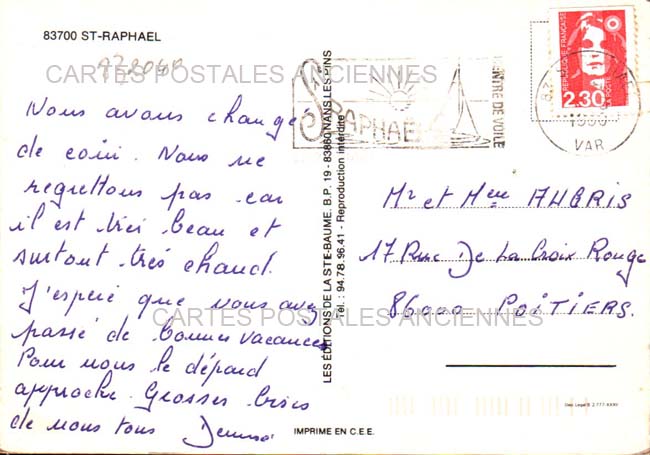 83700 ST-RAPHAEL
CARTES POSTALES ANCIENNES
Nous avons changé
de coin. Nous ne
regrettons pas car
il est très beau et
surtout très chaud.
J'espère que vous avez
passé de bonnes vacances
Pour nous le départ
approche. Grosses bises
de nous tous
LES ÉDITIONS DE LA STE-BAUME. B.P. 19 - 83860 NANS LES PINS
Tél. : 94.78.96.41 - Reproduction interdite
IMPRIME EN C.E.E.
St RAPHAEL
CENTRE DE VOILE
RÉPUBLIQUE FRANÇAISE
LA POSTE
2.30
83
VAR
Mr et Mme AUBRIS
17 Rue De La Croix Rouge
86000 POITIERS.
CARTES POSTALES ANCIENNES